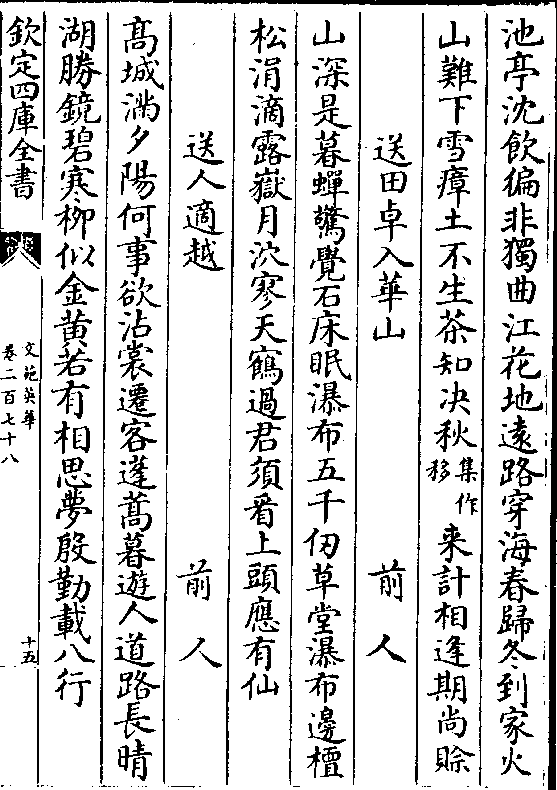 池亭沈飲徧非獨曲江花地遠路穿海春歸冬到家火
山難下雪瘴土不生茶知决秋集作移来計相逢期尚賒
送田卓入華山 前人
山深是暮蟬驚覺石床眠瀑布五千仞草堂瀑布邊檀
松涓滴露嶽月泬寥天鶴過君須看上頭應有仙
送人適越 前人
髙城滿夕陽何事欲沾裳遷客蓬蒿暮遊人道路長晴
湖勝鏡碧寒柳似金黄若有相思夢殷勤載八行
欽定四庫全書
文苑英華
卷二百七十八
十五